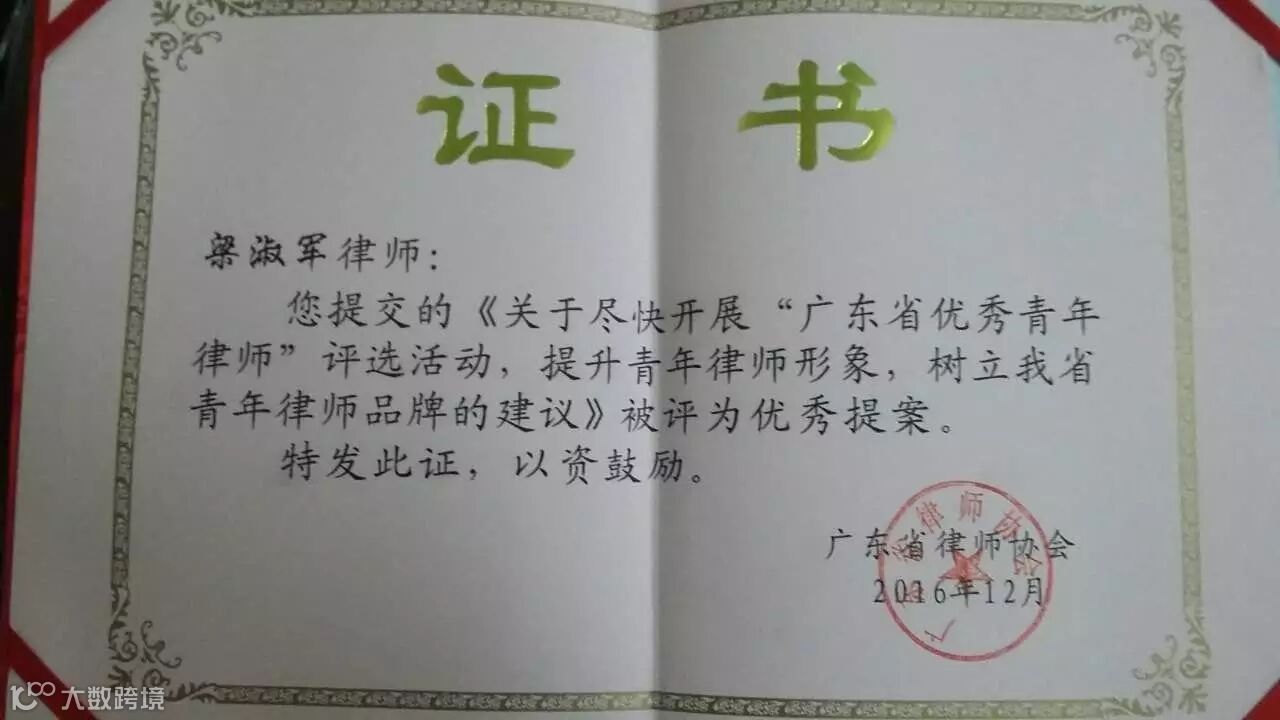 证 书
梁淑军律师：
您提交的《关于尽快开展“广东省优秀青年
律师”评选活动，提升青年律师形象，树立我省
青年律师品牌的建议》被评为优秀提案。
特发此证，以资鼓励。
广东省律师协会
2016年12月
广东省律师协会
大数跨境